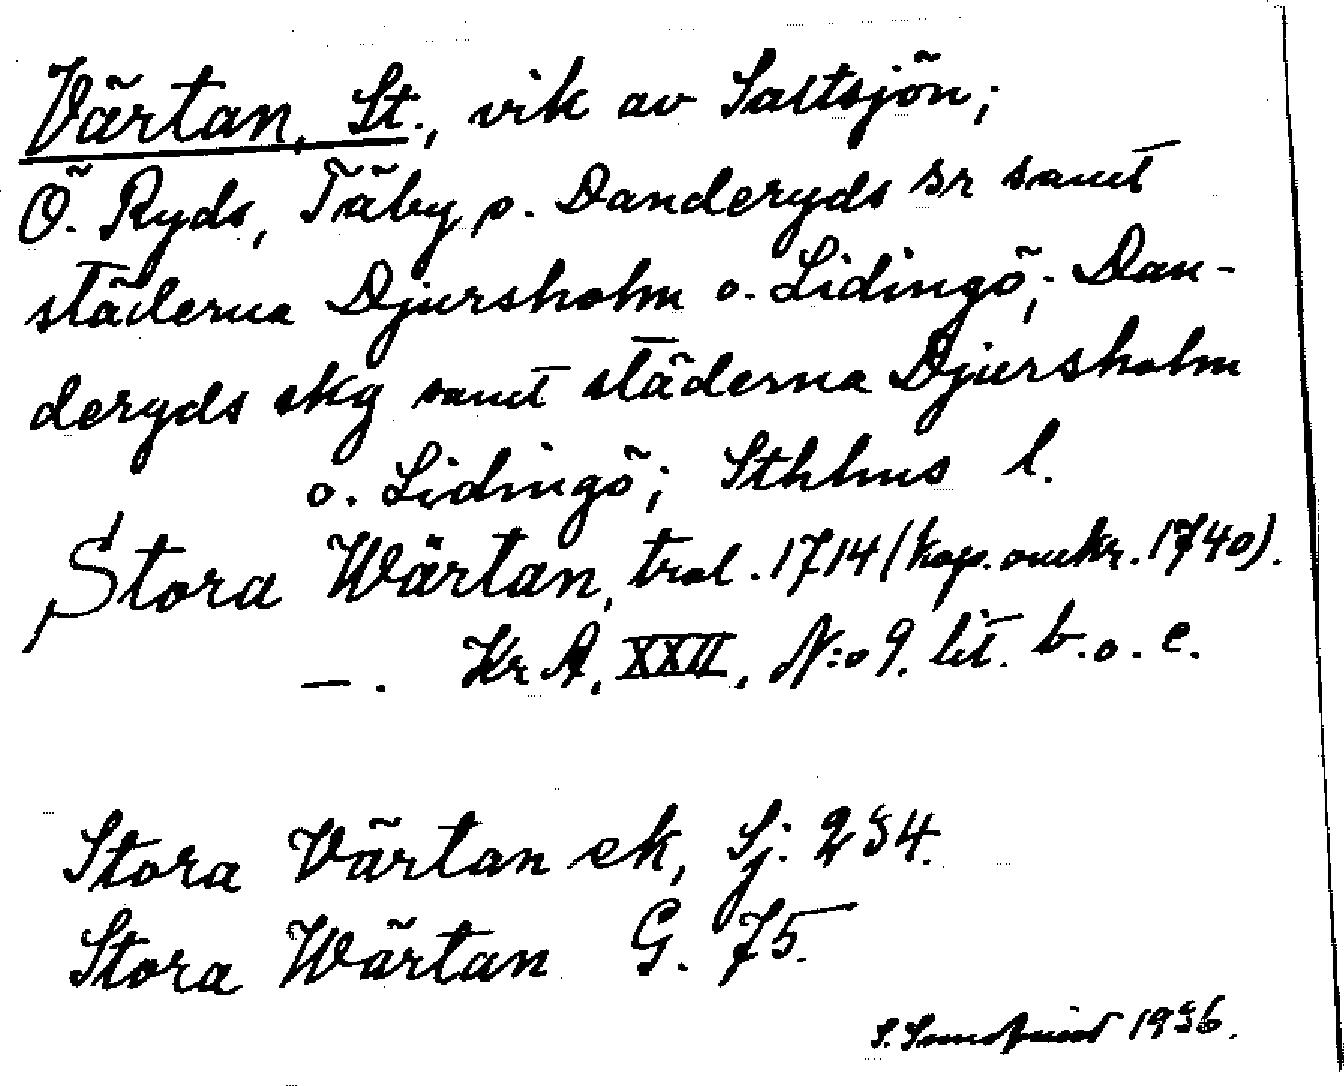 Värtan, St., vik av Saltsjön;
Ö. Ryds, Täby o. Danderyds sr samt
städerna Djursholm o. Lidingö; Dan-
deryds skg samt städerna Djursholm
o. Lidingö; Sthlms l.
Stora Wärtan, trol. 1714 (kop. omkr. 1740).
—. Kr A, XXII, N:o 9. lit. b. o. c.
Stora Värtan ek, Sj. 234.
Stora Wärtan G. 75.
S. 1936.